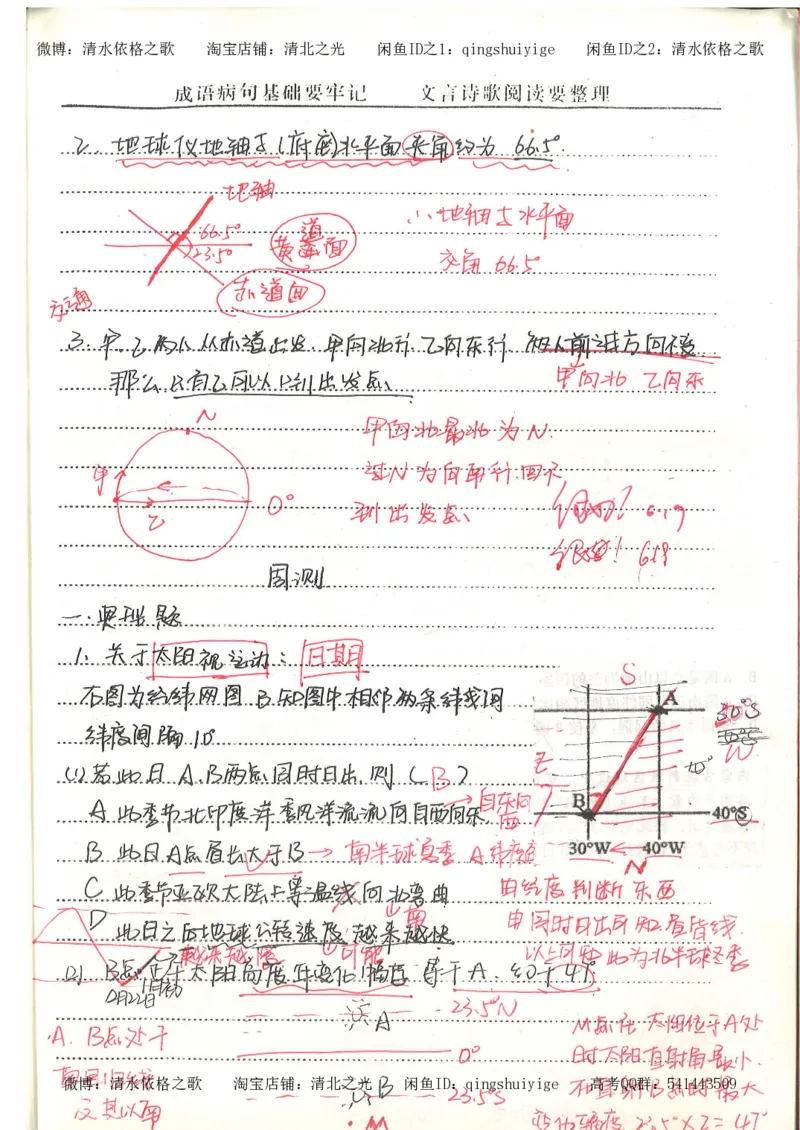 微博：清水依格之歌 淘宝店铺：清北之光 闲鱼ID之1：qingshuiyige 闲鱼ID之2：清水依格之歌
成语病句基础要牢记 文言诗歌阅读要整理
2. 地球仪地轴与(底座)水平面夹角约为 66.5°.
地轴
66.5°
23.5°
黄道面
赤道面
∴地轴与水平面
交角 66.5°
3. 甲、乙两人从赤道出发，甲向北行 乙向东行 两人前进方向不变
那么只有乙可以回到出发点、
甲向北 乙向东
N
甲
乙
0°
甲向北最北为N.
过N为向南行.回不
到出发点、
6.19
6.19
周测
一.典型题
1. 关于太阳视运动：日期
右图为经纬网图 B.知图中相邻两条纬线间
纬度间隔10°
(1) 若此日 A.B两点同时日出,则 (B)
A 此季节北印度洋季风洋流流向自西向东.
→自东向西
B 此日A点昼长大于B → 南半球夏季 A纬度高
C 此季节亚欧大陆上等温线向北弯曲
D 此日之后地球公转速度越来越快
S
A
30°S
B
40°S
30°W 40°W
N
由经度判断东西
由同时日出可知晨昏线.
以上可知此为北半球冬季
(2) B点正午太阳高度年变化幅度 等于A.
23.5°N
A
0°
B
23.5°S
M
A. B点处于
南回归线
及其以南
M点在太阳位于A处
时太阳直射角最小.
变化幅度 23.5°×2=47°
微博：清水依格之歌 淘宝店铺：清北之光 闲鱼ID：qingshuiyige 高考QQ群：541443509